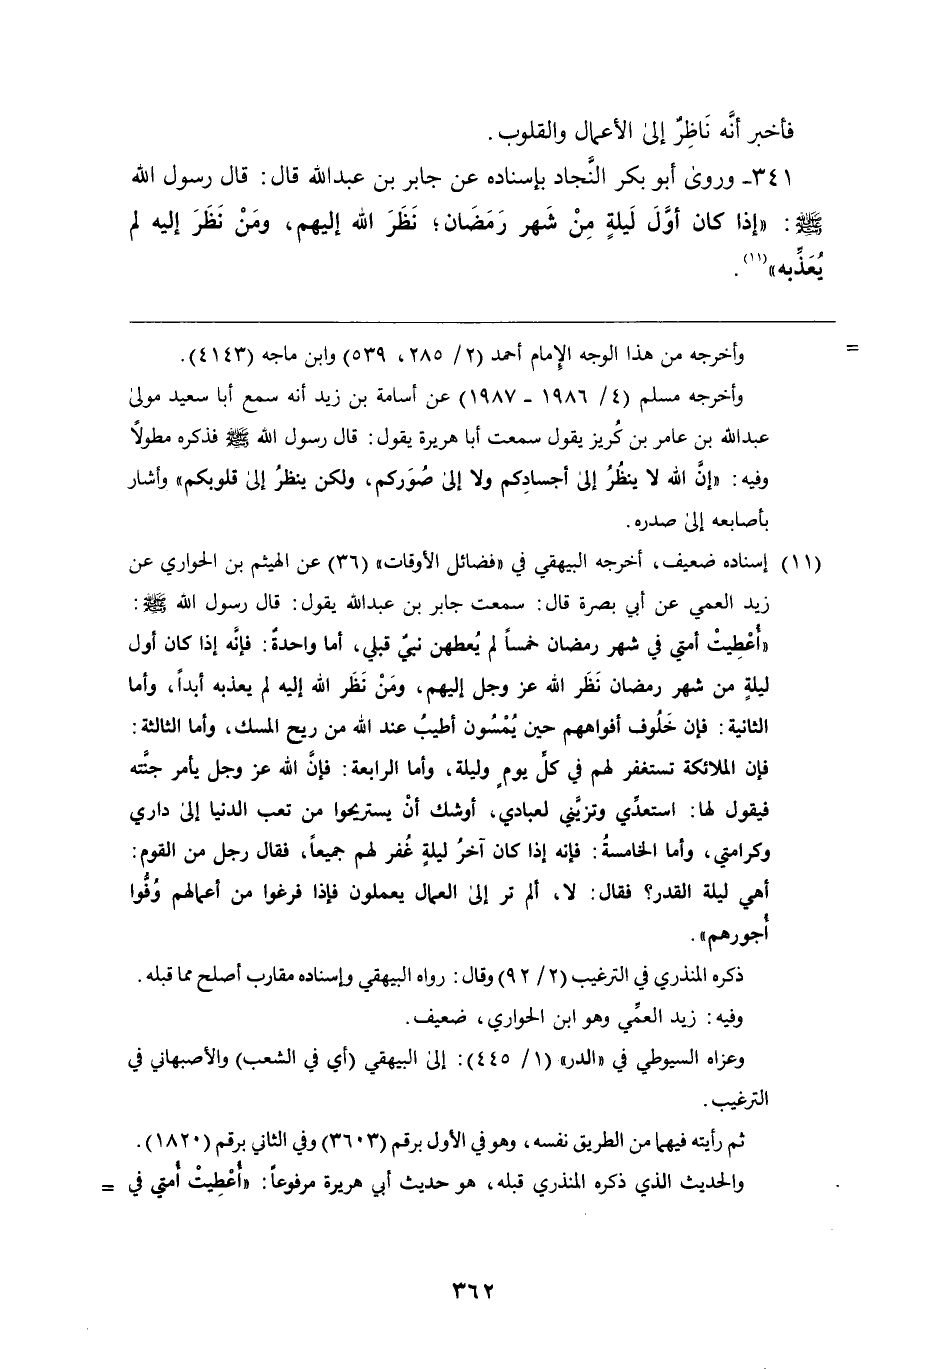 فأخبر أنَّه نَاظِرٌ إلىٰ الأعمال والقلوب.
٣٤١- وروىٰ أبو بكر النَّجاد بإسناده عن جابر بن عبدالله قال: قال رسول الله
ﷺ: «إذا كان أوَّلَ لَيلةٍ مِنْ شَهر رَمَضَان؛ نَظَرَ الله إليهم، ومَنْ نَظَرَ إليه لم
يُعَذِّبه»(١١).
= وأخرجه من هذا الوجه الإمام أحمد (٢/ ٢٨٥، ٥٣٩) وابن ماجه (٤١٤٣).
وأخرجه مسلم (٤/ ١٩٨٦ - ١٩٨٧) عن أسامة بن زيد أنه سمع أبا سعيد مولىٰ
عبدالله بن عامر بن كُريز يقول سمعت أبا هريرة يقول: قال رسول الله ﷺ فذكره مطولاً
وفيه: «إنَّ الله لا ينظُرُ إلىٰ أجسادِكم ولا إلىٰ صُوَركم، ولكن ينظرُ إلىٰ قلوبكم» وأشار
بأصابعه إلىٰ صدره.
(١١) إسناده ضعيف، أخرجه البيهقي في «فضائل الأوقات» (٣٦) عن الهيثم بن الحواري عن
زيد العمي عن أبي بصرة قال: سمعت جابر بن عبدالله يقول: قال رسول الله ﷺ:
«أُعْطِيتْ أمتي في شهر رمضان خمساً لم يُعطهن نبيٌ قبلي، أما واحدةٌ: فإنَّه إذا كان أول
ليلةٍ من شهر رمضان نَظَر الله عز وجل إليهم، ومَنْ نَظَر الله إليه لم يعذبه أبداً، وأما
الثانية: فإن خَلُوف أفواههم حين يُمْسُون أطيبُ عند الله من ريح المسك، وأما الثالثة:
فإن الملائكة تستغفر لهم في كلِّ يومٍ وليلة، وأما الرابعة: فإنَّ الله عز وجل يأمر جنَّته
فيقول لها: استعدِّي وتزيَّني لعبادي، أوشك أنْ يستريحوا من تعب الدنيا إلىٰ داري
وكرامتي، وأما الخامسةُ: فإنه إذا كان آخرُ ليلةٍ غُفر لهم جميعاً، فقال رجل من القوم:
أهي ليلة القدر؟ فقال: لا، ألم تر إلىٰ العمال يعملون فإذا فرغوا من أعمالهم وُفُّوا
أُجورهم».
ذكره المنذري في الترغيب (٢/ ٩٢) وقال: رواه البيهقي وإسناده مقارب أصلح مما قبله.
وفيه: زيد العمِّي وهو ابن الحواري، ضعيف.
وعزاه السيوطي في «الدر» (١/ ٤٤٥): إلىٰ البيهقي (أي في الشعب) والأصبهاني في
الترغيب.
ثم رأيته فيهما من الطريق نفسه، وهو في الأول برقم (٣٦٠٣) وفي الثاني برقم (١٨٢٠).
والحديث الذي ذكره المنذري قبله، هو حديث أبي هريرة مرفوعاً: «أُعْطِيتْ أُمتي في =
٣٦٢